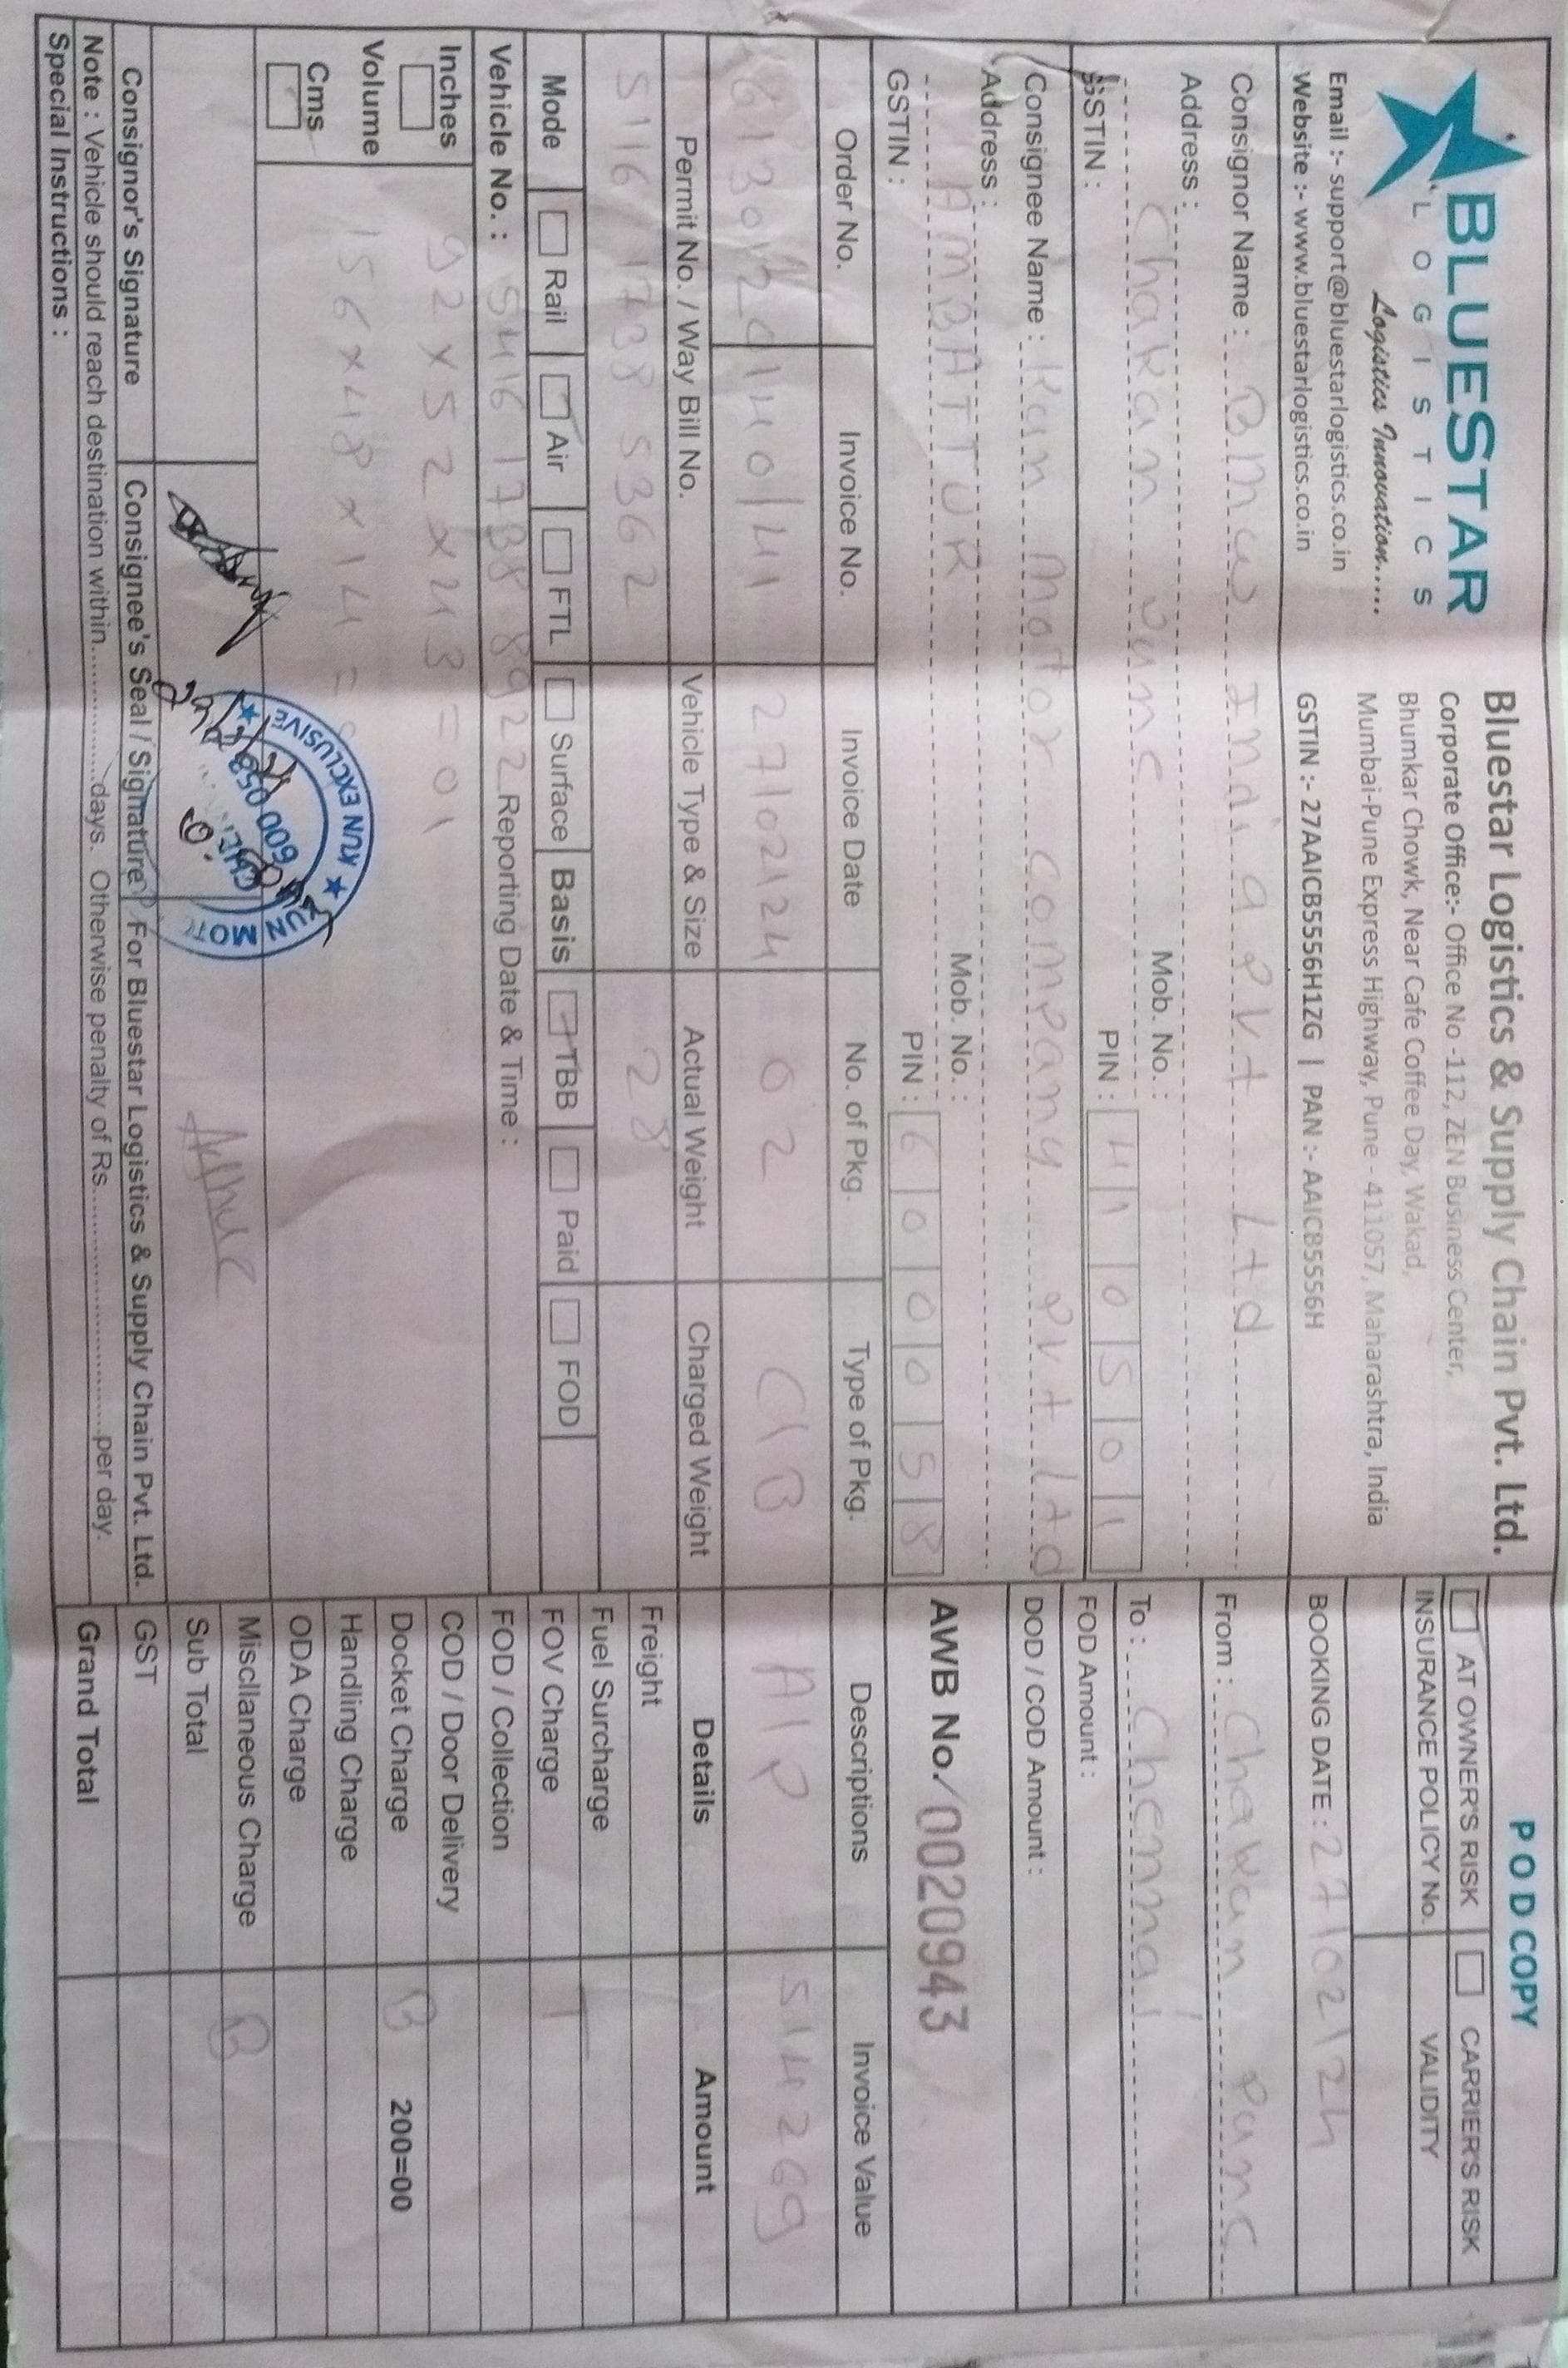 BLUESTAR
LOGISTICS
Logistics Innovation.....
Email :- support@bluestarlogistics.co.in
Website :- www.bluestarlogistics.co.in
Bluestar Logistics & Supply Chain Pvt. Ltd.
Corporate Office:- Office No -112, ZEN Business Center,
Bhumkar Chowk, Near Cafe Coffee Day, Wakad,
Mumbai-Pune Express Highway, Pune - 411057, Maharashtra, India
GSTIN :- 27AAICB5556H1ZG | PAN :- AAICB5556H
POD COPY
AT OWNER'S RISK CARRIER'S RISK
INSURANCE POLICY No. VALIDITY
BOOKING DATE : 27/02/24
Consignor Name : BMW India Pvt Ltd
From : Chakan Pune
Address :
Chakan Pune Mob. No. :
To : Chennai
GSTIN : PIN : 410501
FOD Amount :
Consignee Name : Kun Motor company Pvt Ltd
DOD / COD Amount :
Address :
AMBATTUR Mob. No. :
GSTIN : PIN : 600058
AWB No. 0020943
Order No. Invoice No. Invoice Date No. of Pkg. Type of Pkg. Descriptions Invoice Value
140/41 27/02/24 02 C/B A/P 514269
Permit No. / Way Bill No. Vehicle Type & Size Actual Weight Charged Weight Details Amount
5116 1738 5362 28
Freight
Fuel Surcharge
Mode Rail Air FTL Surface Basis TBB Paid FOD
FOV Charge T
Vehicle No. : 5416 1738 8922 Reporting Date & Time :
FOD / Collection
Inches 92x52x43=01
COD / Door Delivery
Docket Charge B 200=00
Volume 156x48x14=
Handling Charge
Cms
ODA Charge
KUN EXCLUSIVE ★ KUN MOT
600 058
Miscllaneous Charge B
Sub Total
Consignor's Signature Consignee's Seal / Signature For Bluestar Logistics & Supply Chain Pvt. Ltd.
GST
Note : Vehicle should reach destination within...............days. Otherwise penalty of Rs............................per day.
Grand Total
Special Instructions :